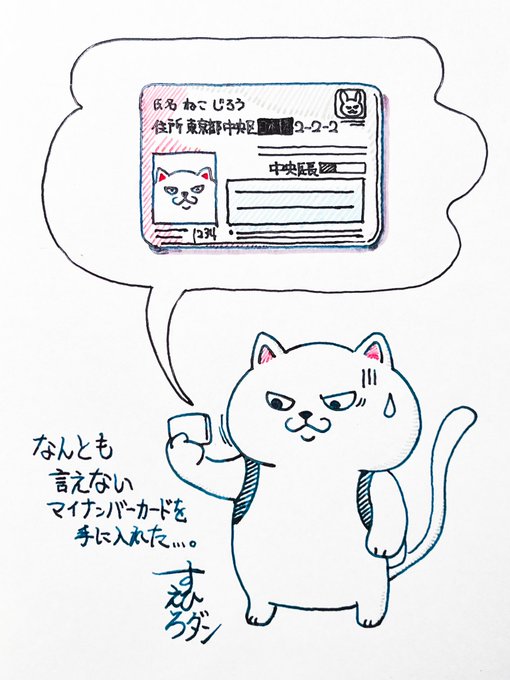 氏名 ねこ じろう
住所 東京都中央区 2-2-2
中央区長
1234
なんとも
言えない
マイナンバーカードを
手に入れた…。
すえひろダン